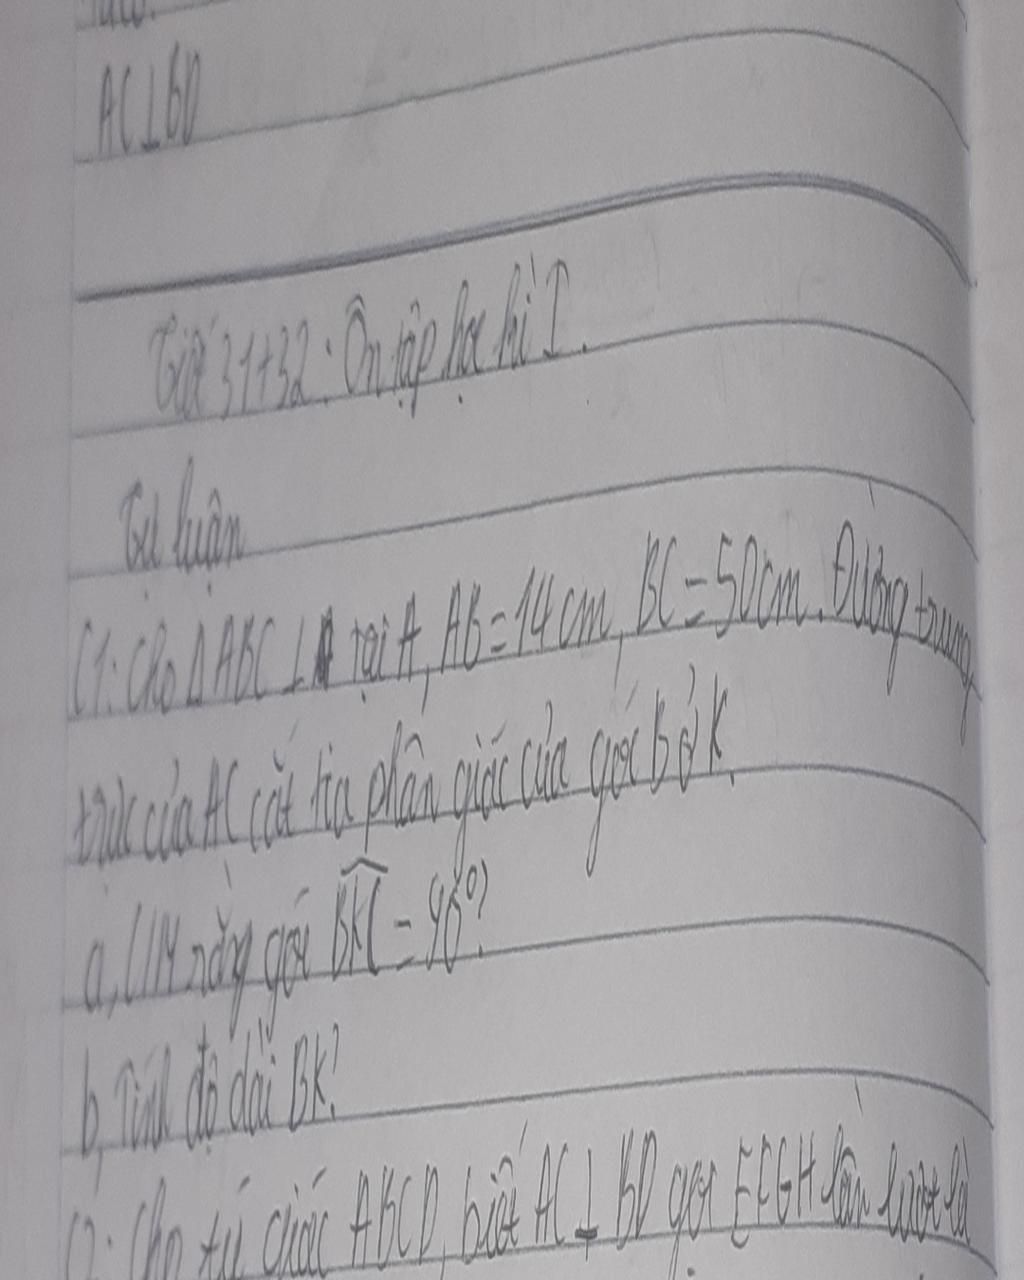 AC⊥BD
Tiết 31+32: Ôn tập học kì I.
Tự luận
C1: Cho Δ ABC ⊥ tại A, AB = 14 cm, BC = 50 cm. Đường trung
trực của AC cắt tia phân giác của góc B ở K.
a, CM rằng góc BKC = 90°?
b, Tính độ dài BK?
C2: Cho tứ giác ABCD, biết AC ⊥ BD gọi EFGH lần lượt là